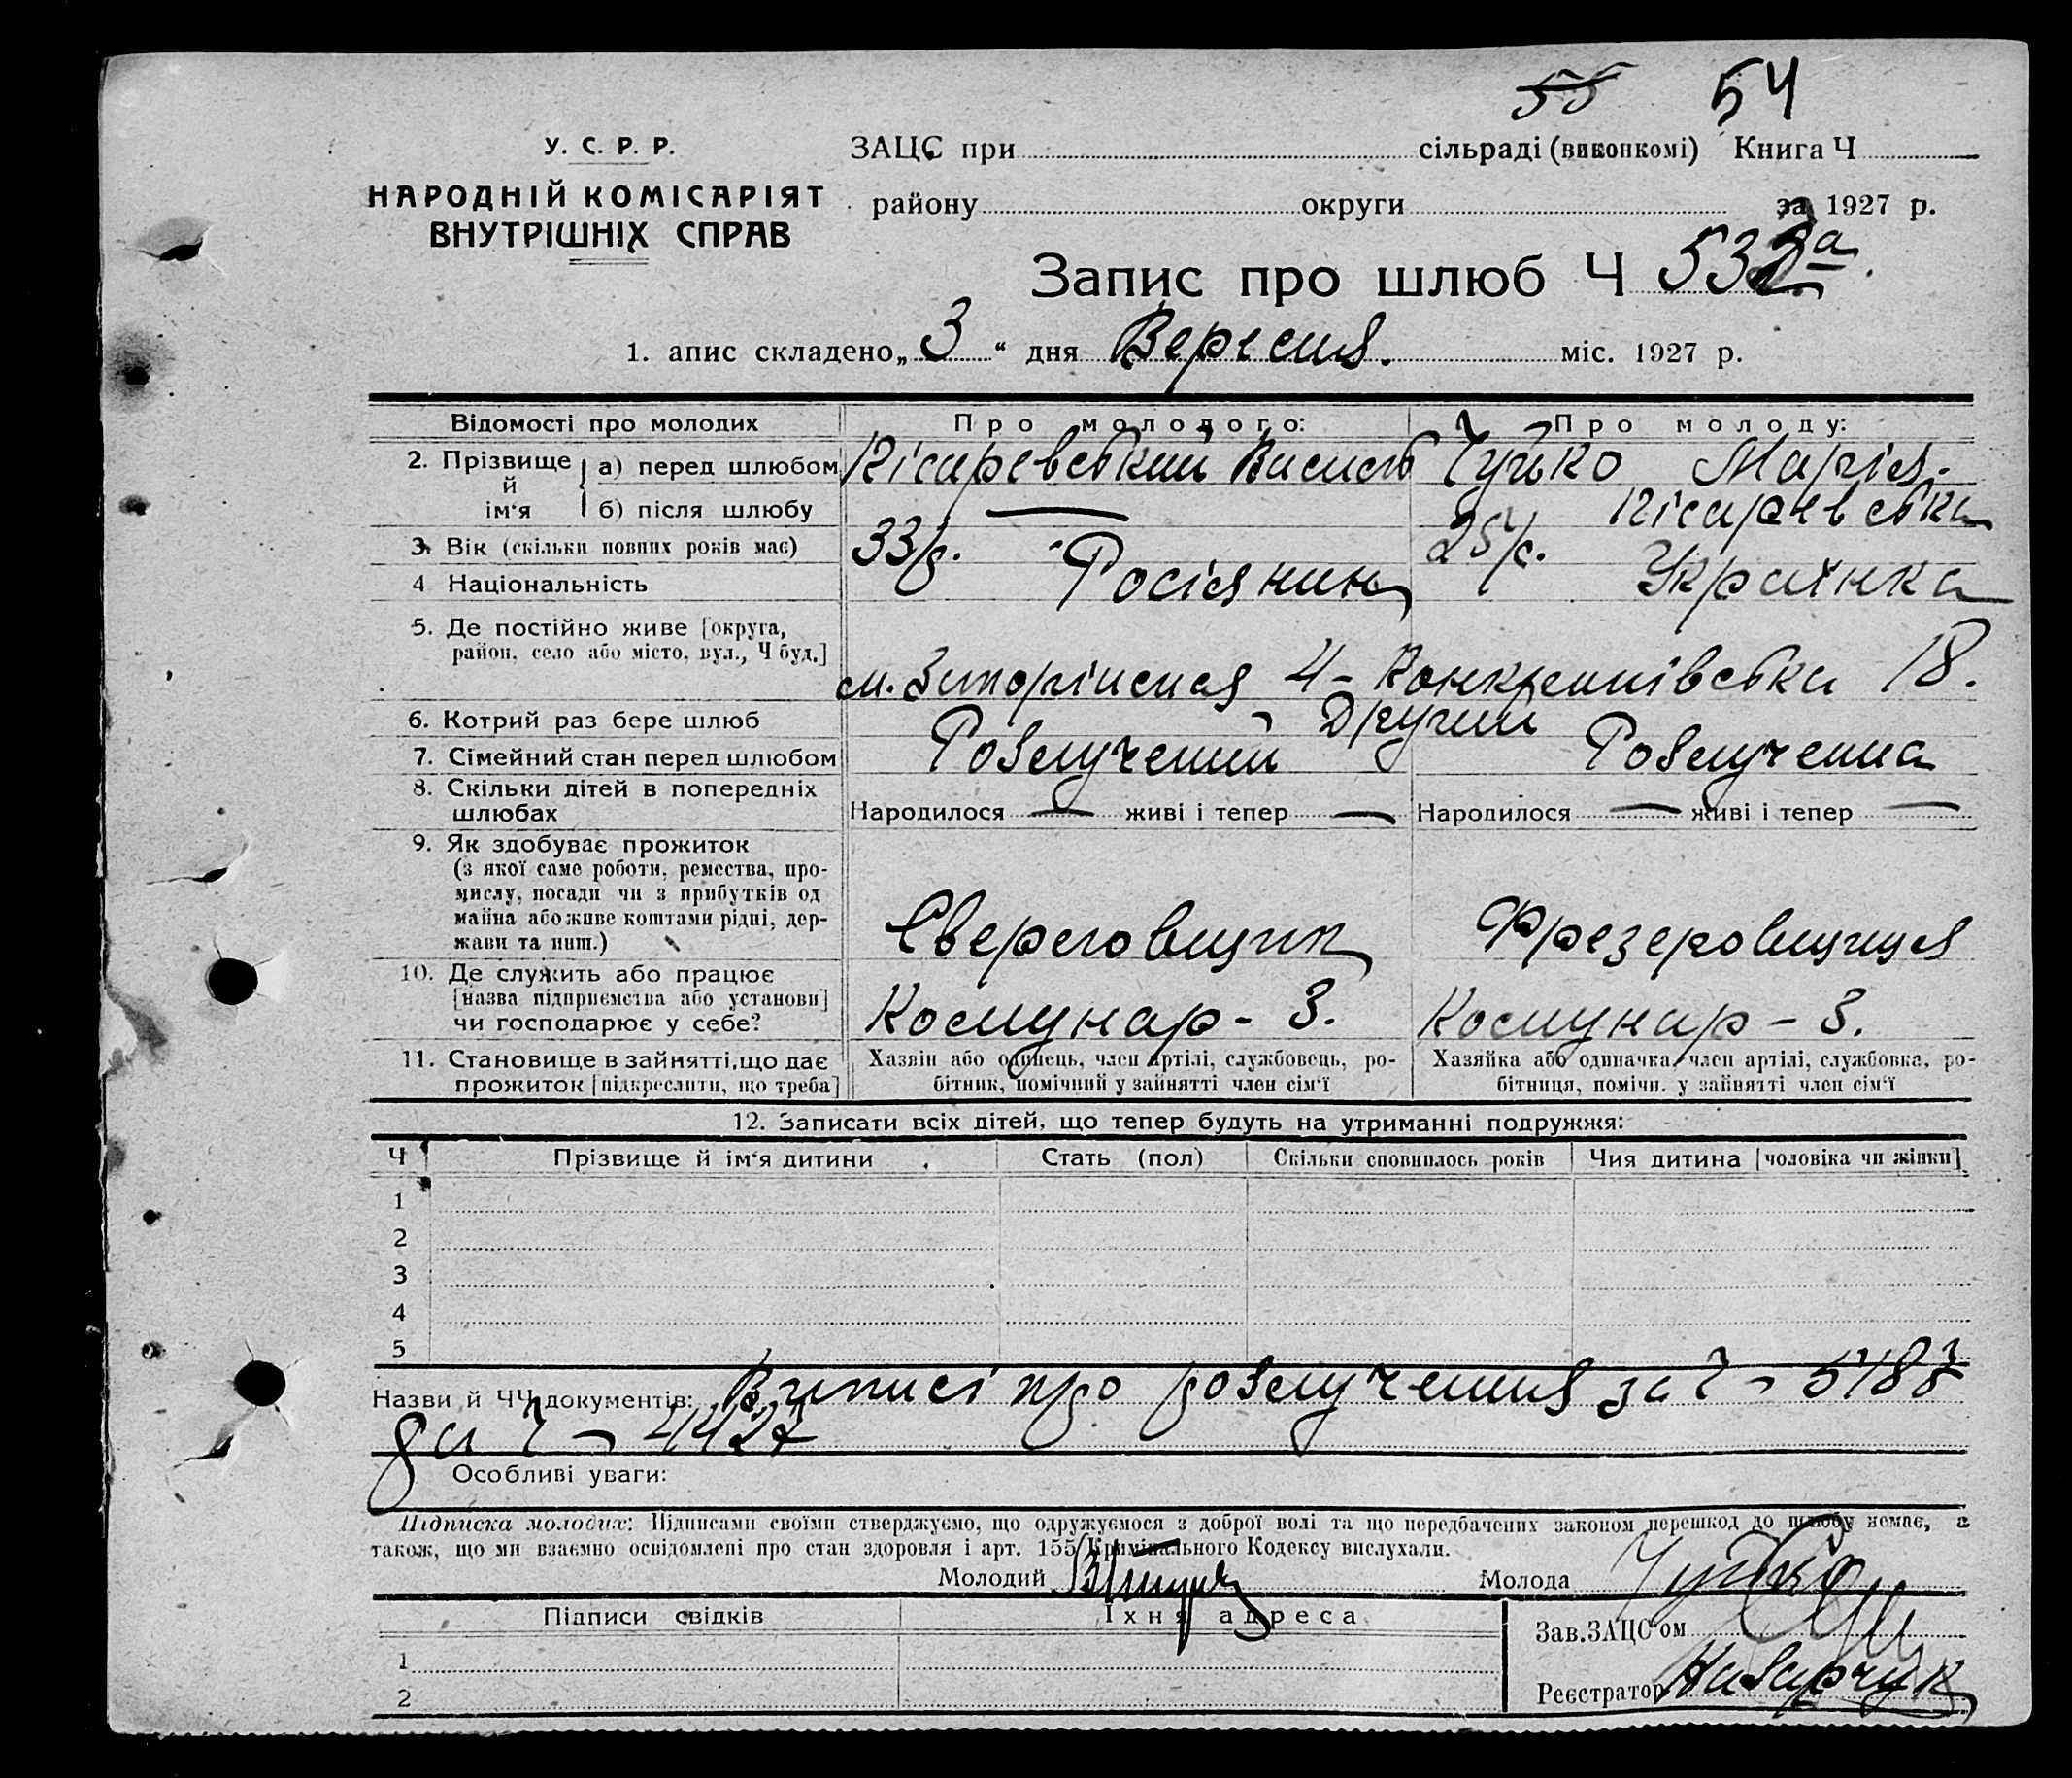 55 54
У. С. Р. Р.
ЗАЦС при сільраді (виконкомі) Книга Ч
НАРОДНІЙ КОМІСАРІЯТ
ВНУТРІШНІХ СПРАВ
району округи за 1927 р.
Запис про шлюб Ч 532а
1. апис складено „3“ дня Вересня. міс. 1927 р.
Відомості про молодих Про молодого: Про молоду:
2. Прізвище й ім‘я
а) перед шлюбом Кісаревський Василь Чуйко Марія.
б) після шлюбу — Кісаревська
3. Вік (скільки повних років має) 33 р. 25 р.
4 Національність Росіянин Українка
5. Де постійно живе [округа,
район, село або місто, вул., Ч буд.]
м. Запоріжжя 4 - 18.
6. Котрий раз бере шлюб Другий
7. Сімейний стан перед шлюбом Розлучений Розлучена
8. Скільки дітей в попередніх
шлюбах Народилося — живі і тепер — Народилося — живі і тепер —
9. Як здобуває прожиток
(з якої саме роботи, ремества, про-
мислу, посади чи з прибутків од
майна або живе коштами рідні, дер-
жави та инш.) Сверловщик Фрезеровщиця
10. Де служить або працює
[назва підприємства або установи]
чи господарює у себе? Комунар - З. Комунар - З.
11. Становище в зайнятті, що дає
прожиток [підкреслити, що треба]
Хазяін або одинець, член артілі, службовець, ро-
бітник, помічний у зайнятті член сім‘ї
Хазяйка або одиначка, член артілі, службовка, ро-
бітниця, помічн. у зайнятті член сім‘ї
12. Записати всіх дітей, що тепер будуть на утриманні подружжя:
Ч Прізвище й ім‘я дитини Стать (пол) Скільки сповнилось років Чия дитина [чоловіка чи жінки]
1
2
3
4
5
Назви й ЧЧ документів: Виписі про розлучення за Ч -
за Ч - 4427
Особливі уваги:
Підписка молодих: Підписами своїми стверджуємо, що одружуємося з доброї волі та що передбачених законом перешкод до шлюбу немає, а
також, що ми взаємно освідомлені про стан здоровля і арт. 155 Кримінального Кодексу вислухали.
Молодий Молода Чуйко
Підписи свідків Їхня адреса
Зав. ЗАЦС‘ом
1
Реєстратор Назарчук
2